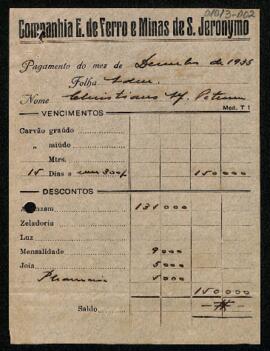 Companhia E. de Ferro e Minas de S. Jeronymo
Pagamento do mez de Dezembro de 1935
Folha
Nome Christiano
Mod. T 1
VENCIMENTOS
Carvão graúdo
„ miúdo
Mtrs.
15 Dias a 150000
DESCONTOS
Armazem 131000
Zeladoria
Luz
Mensalidade 9000
Joia 5000
Pharmacia 5000
150000
Saldo